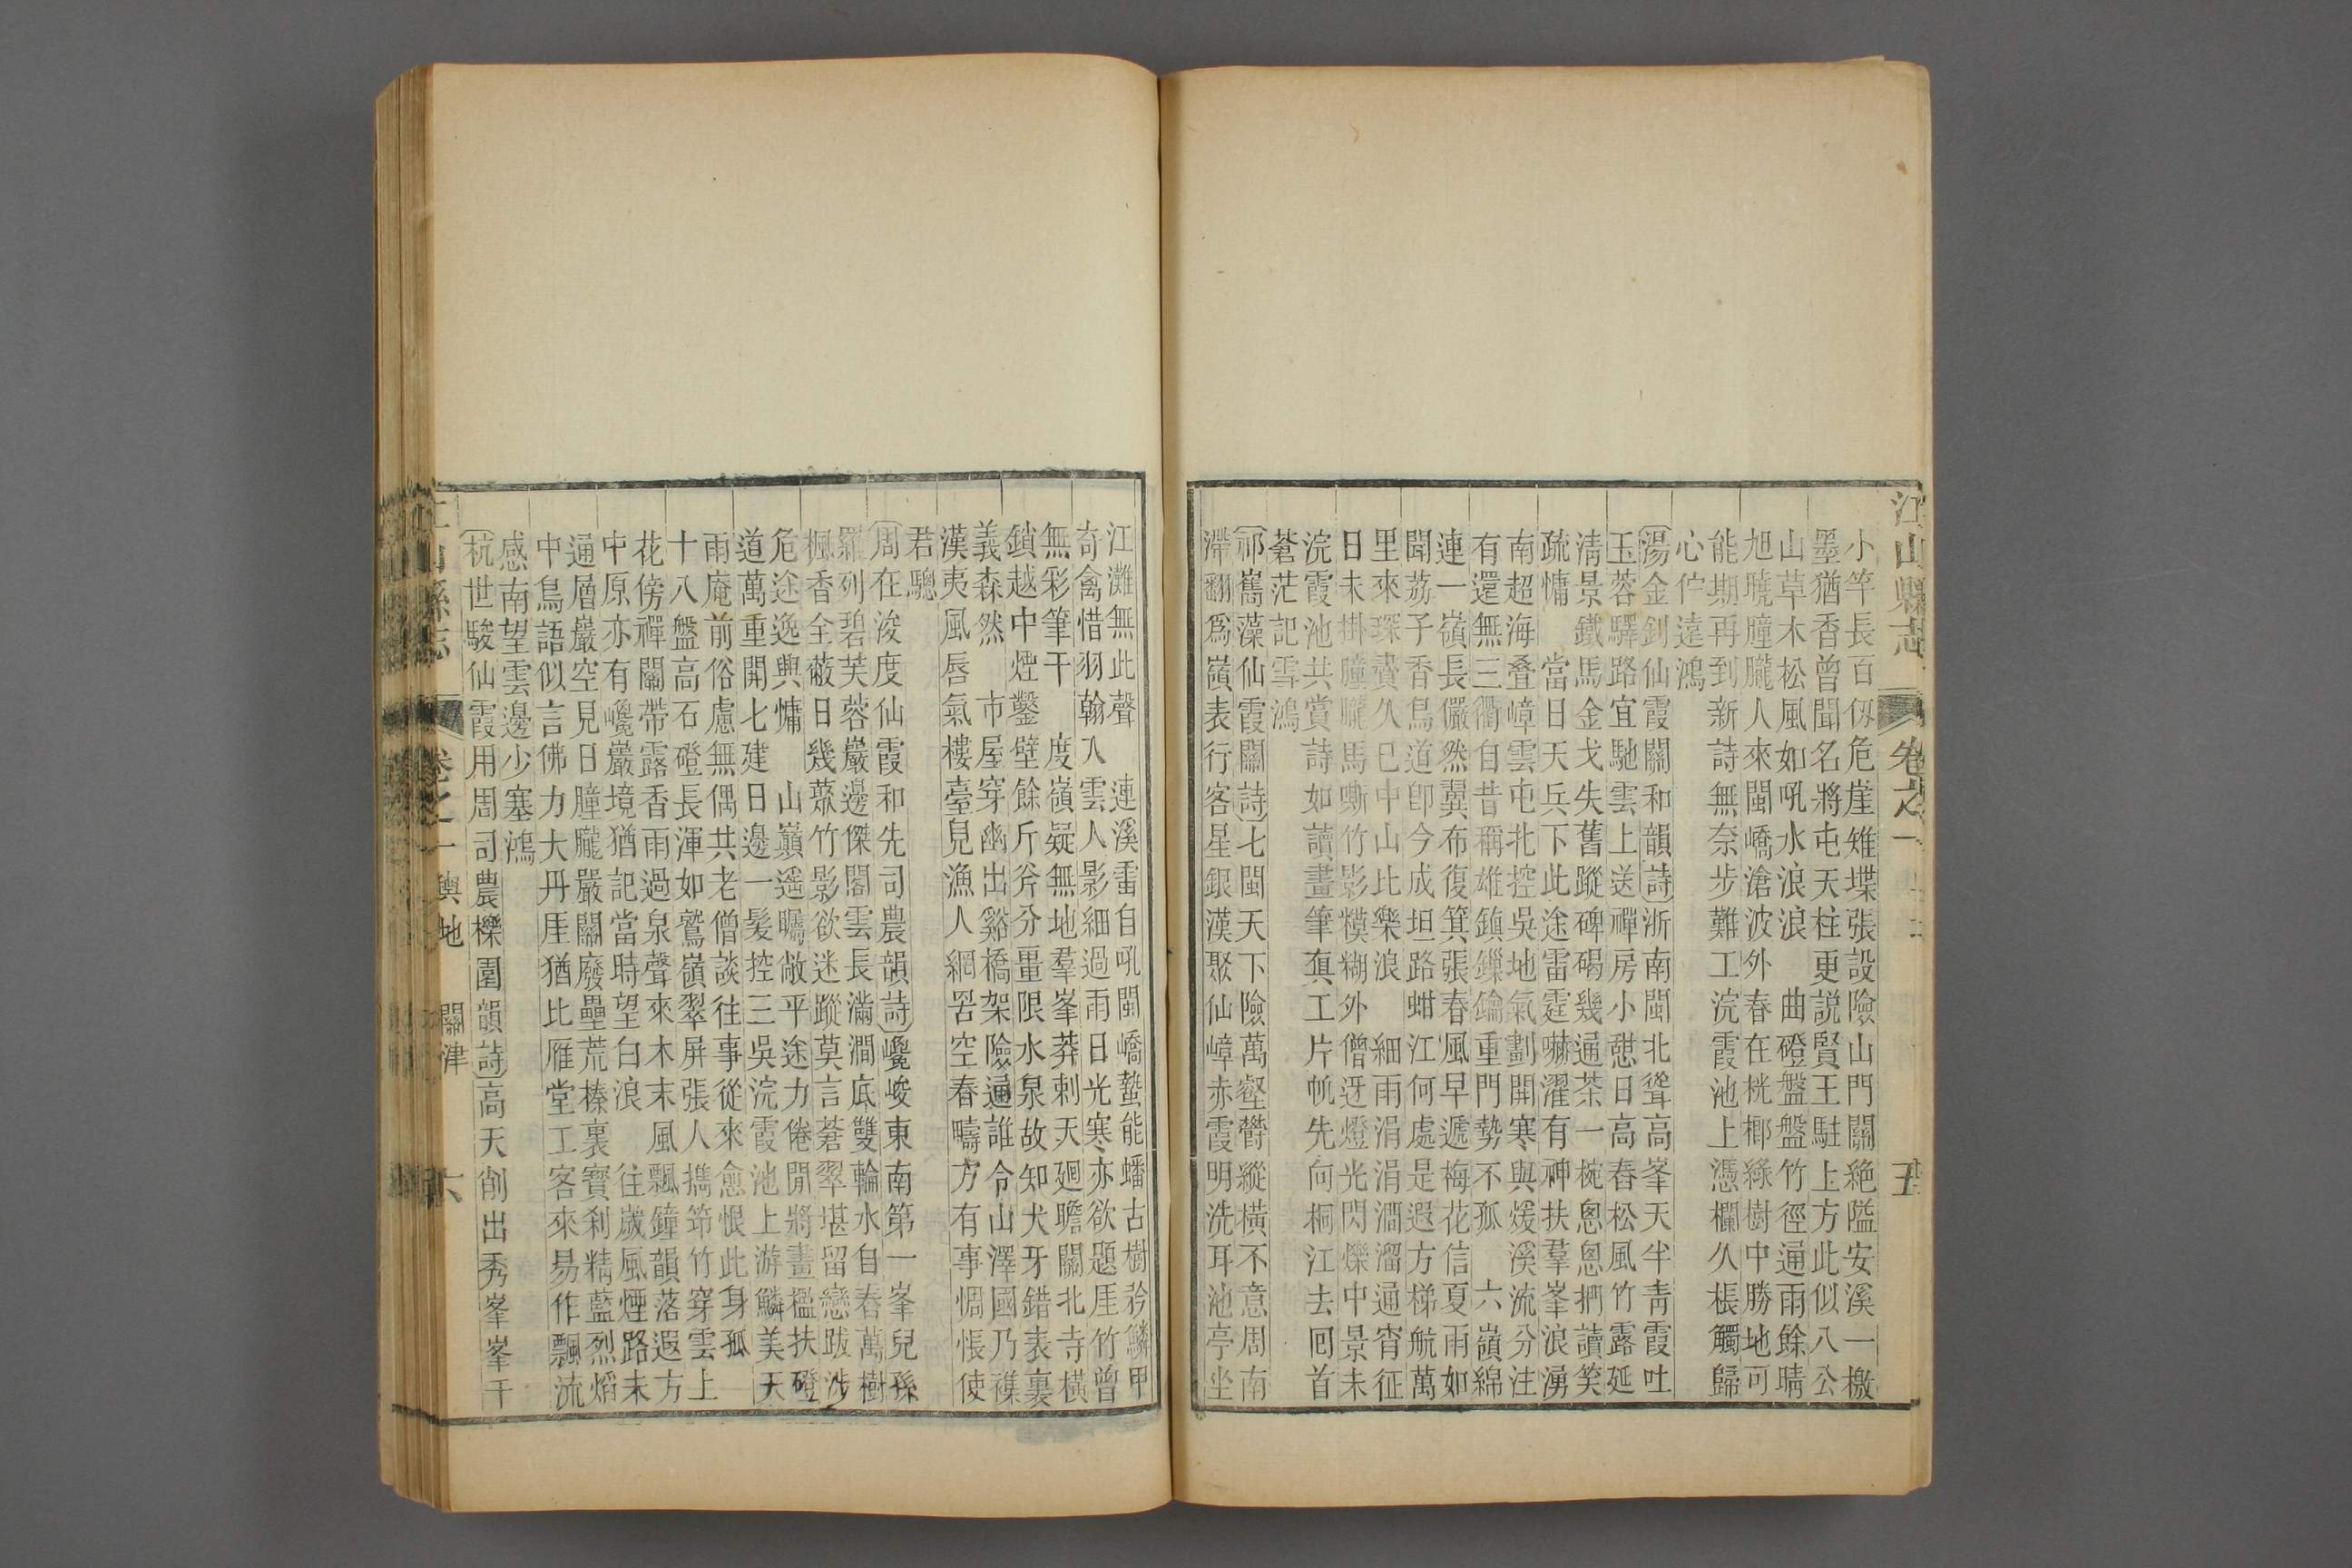 江山縣志
卷之一
五
小竿長百仭危崖雉堞張設險山門關絶隘安溪一檄
墨猶香曾聞名將屯天柱更説賢王駐上方此似八公
山草木松風如吼水浪浪　曲磴盤盤竹徑通雨餘晴
旭曉朣朧人來閩嶠滄波外春在桄榔綠樹中勝地可
能期再到新詩無奈步難工浣霞池上憑欄久棖觸歸
心佇遠鴻
湯金釗仙霞關和韻詩浙南閩北聳高峯天半青霞吐
玉蓉驛路宜馳雲上送禪房小憇日高舂松風竹露延
清景鐵馬金戈失舊蹤碑碣幾通茶一椀恩恩捫讀笑
疏慵　當日天兵下此途雷霆嚇濯有神扶羣峯浪湧
南超海疊嶂雲屯北控吳地氣劃開寒與煖溪流分注
有還無三衢自昔稱雄鎮鏁鑰重門勢不孤　六嶺綿
連一嶺長儼然翼布復箕張春風早遞梅花信夏雨如
聞荔子香鳥道卽今成坦路蚶江何處是遐方梯航萬
里來琛賚久已中山比樂浪　細雨涓涓澗溜通宵征
日未掛朣朧馬嘶竹影糢糊外僧迓燈光閃爍中景未
浣霞池共賞詩如讀畫筆眞工片帆先向桐江去囘首
蒼茫記雪鴻
祁寯藻仙霞關詩七閩天下險萬壑欝縱橫不意周南
滯翻爲嶺表行客星銀漢聚仙嶂赤霞明洗耳池亭坐
江灘無此聲　連溪雷自吼閩嶠蟄能蟠古樹矜鱗甲
奇禽惜羽翰入雲人影細過雨日光寒亦欲題厓竹曾
無彩筆干　度嶺疑無地羣峯莽刺天廻瞻關北寺橫
鎖越中煙鑿壁餘斤斧分畺限水泉故知犬牙錯表裏
義森然　市屋穿幽出谿橋架險過誰令山澤國乃襍
漢夷風唇氣樓臺兒漁人網罟空春疇方有事惆悵使
君驄
周在浚度仙霞和先司農韻詩巉峻東南第一峯兒孫
羅列碧芙蓉巖邊傑閣雲長滿澗底雙輪水自舂萬樹
楓香全蔽日幾叢竹影欲迷蹤莫言蒼翠堪留戀跋涉
危途逸興慵　山巔遥矚敞平途力倦閒將畫檻扶磴
道萬重開七建日邊一髮控三吳浣霞池上游鱗美天
雨庵前俗慮無偶共老僧談往事從來愈恨此身孤
十八盤高石磴長渾如鷲嶺翠屏張人擕笻竹穿雲上
花傍禪關帶露香雨過泉聲來木末風飄鐘韻落遐方
中原亦有巉巖境猶記當時望白浪　往歲風煙路未
通層巖空見日朣朧嚴關廢壘荒榛裏寶刹精藍烈熖
中鳥語似言佛力大丹厓猶比雁堂工客來易作飄流
感南望雲邊少塞鴻
杭世駿仙霞用周司農櫟園韻詩高天削出秀峯峯千
江山縣志
卷之一　輿地　關津
六